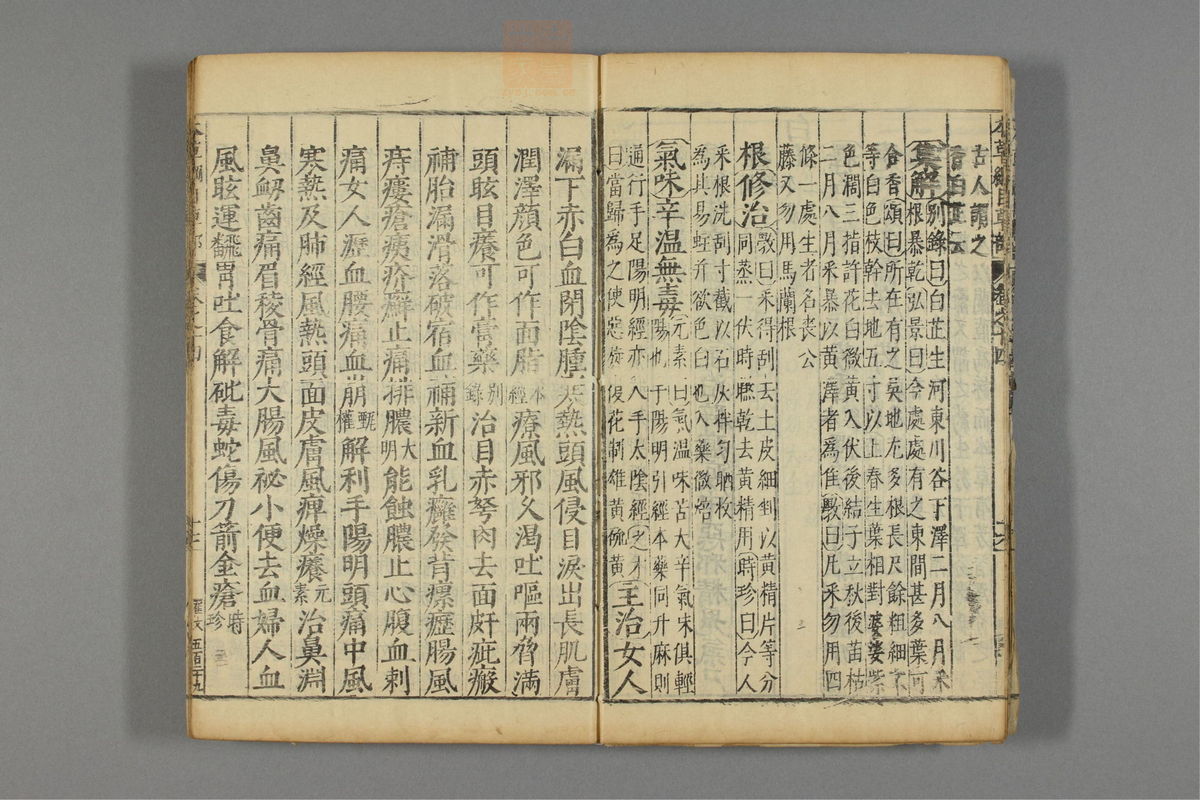 古人謂之
香白芷云
集解別錄曰白芷生河東川谷下澤二月八月采
根暴乾弘景曰今處處有之東間甚多葉可
合香頌曰所在有之吳地尤多根長尺餘粗細不
等白色枝幹去地五寸以上春生葉相對婆娑紫
色濶三指許花白微黃入伏後結子立秋後苗枯
二月八月采暴以黃澤者爲佳斅曰凡采勿用四
條一處生者名喪公
藤又勿用馬蘭根
根修治斅曰采得刮去土皮細剉以黃精片等分
同蒸一伏時晒乾去黃精用時珍曰今人
采根洗刮寸截以石灰拌勻晒收
為其易蛀并欲色白也入藥微焙
氣味辛溫無毒元素曰氣溫味苦大辛氣味俱輕
陽也手陽明引經本藥同升麻則
通行手足陽明經亦入手太陰經之才
曰當歸爲之使惡旋復花制雄黃硫黃主治女人
漏下赤白血閉陰腫寒熱頭風侵目淚出長肌膚
潤澤顔色可作面脂本經療風邪久渴吐嘔兩脅滿
頭眩目癢可作膏藥別錄治目赤弩肉去面皯疵瘢
補胎漏滑落破宿血補新血乳癰發背瘰癧腸風
痔瘻瘡痍疥癬止痛排膿大明能蝕膿止心腹血刺
痛女人瀝血腰痛血崩甄權解利手陽明頭痛中風
寒熱及肺經風熱頭面皮膚風痺燥癢元素治鼻淵
鼻衂齒痛眉稜骨痛大腸風祕小便去血婦人血
風眩運翻胃吐食解砒毒蛇傷刀箭金瘡時珍
五百二十九